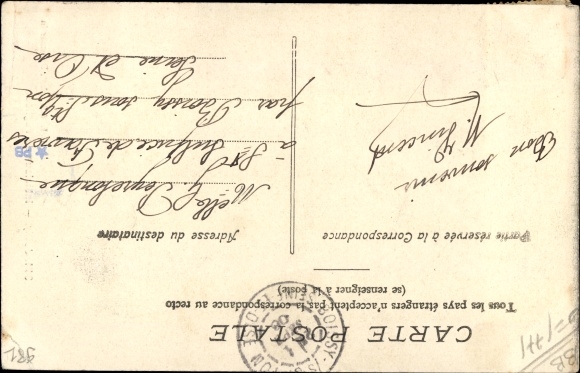 CARTE POSTALE
Tous les pays étrangers n'acceptent pas la correspondance au recto
(se renseigner à la poste)
Partie réservée à la Correspondance
Adresse du destinataire
Bon souvenir
Vincent
Melle
à St Sulpice de Favières
par Boissy sous St Yon
Seine et Oise
BOISSY-
SEINE-ET-OISE
PB